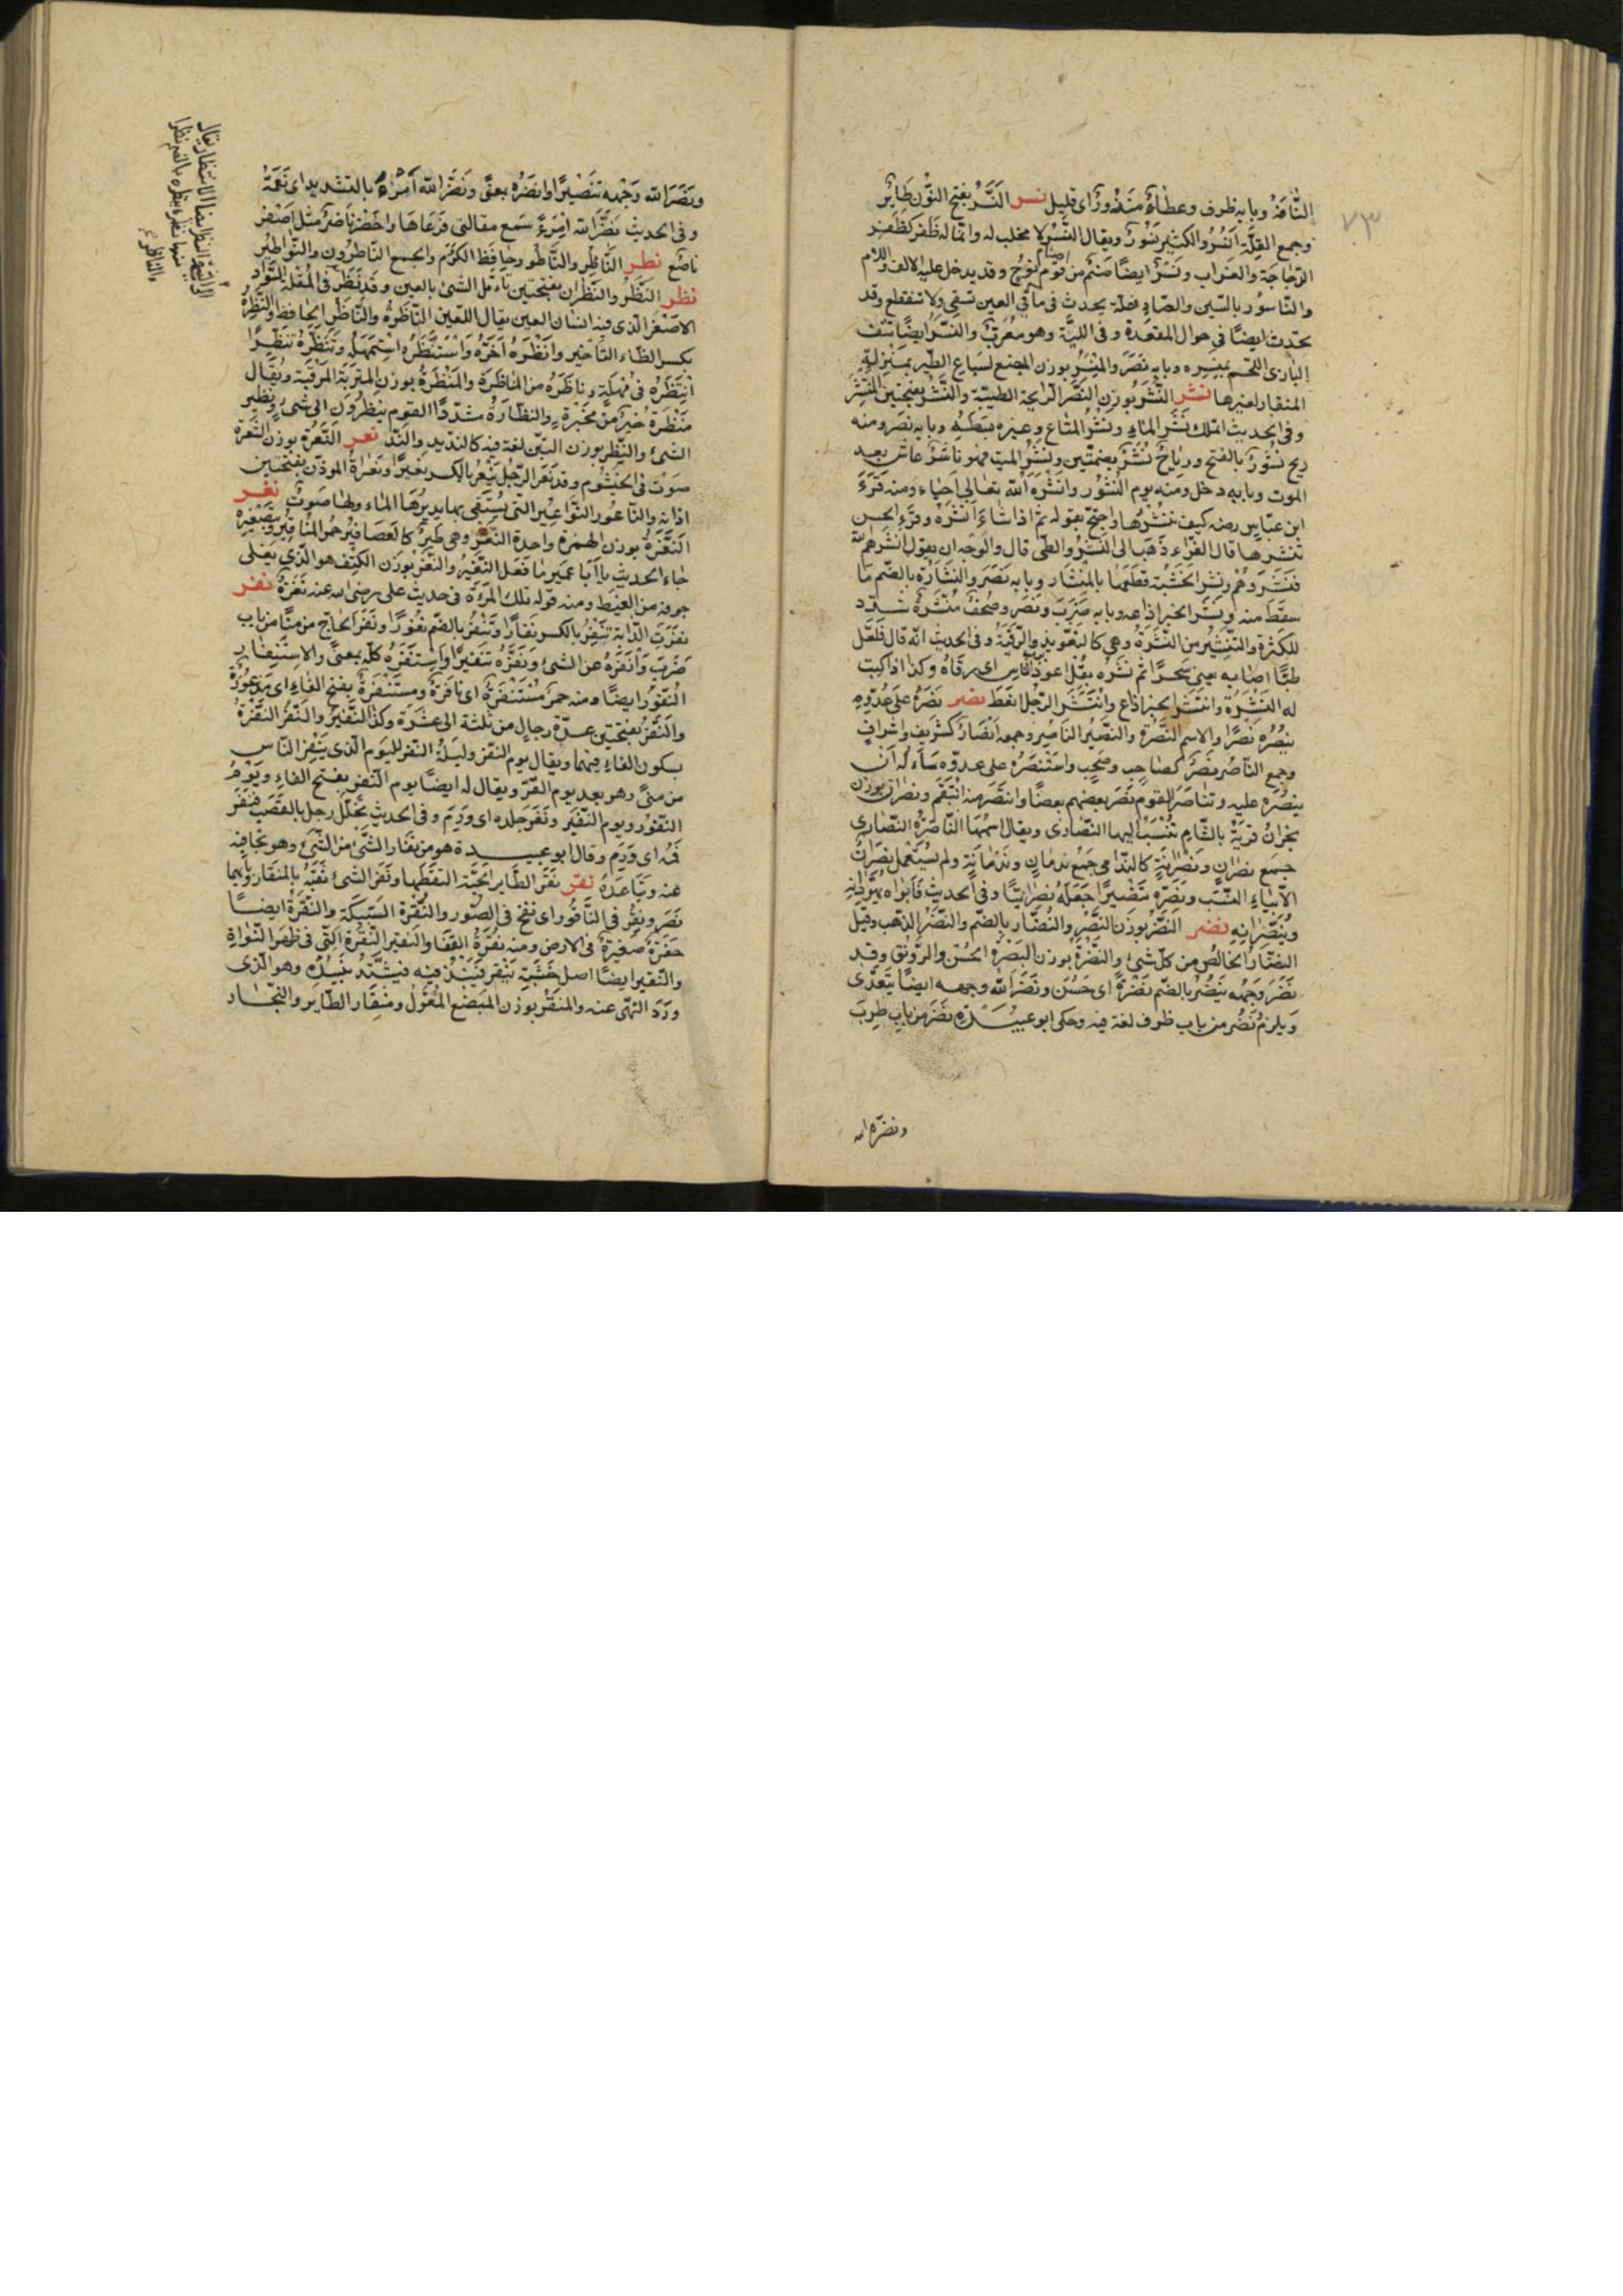 التافه وبابه ظرف وعطاء منذور اى قليل نسر النسر بفتح النون طاير
وجمع القلة انسر والكثير نسور ويقال النسر لا مخلب له وانما له ظفر كظفر
الدجاجة والغراب ونسر ايضا صنم من اصنام قوم نوح وقد يدخل عليه الالف واللام
والناسور بالسين والصاد علة يحدث فى ماقى العين تسقى ولا تنقطع وقد
يحدث ايضا فى حوال المقعدة وفى اللثة وهو معرب والنسر ايضا نتف
البازى اللحم بمنسره وبابه نصر والمنسر بوزن المبضع لسباع الطير بمنزلة
المنقار لغيرها نشر النشر بوزن النصر الرايحة الطيبة والنشر بفتحتين المنتشر
وفى الحديث اتملك نشر الماء ونشر المتاع وغيره بسطه وبابه نصر ومنه
ريح نشور بالفتح ورياح نشر بضمتين ونشر الميت فهو ناشر عاش بعد
الموت وبابه دخل ومنه يوم النشور وانشره الله تعالى احياه ومنه قرء
ابن عباس رضه كيف ننشرها واحتج بقوله ثم اذا شاء انشره وقرء الحسن
ننشرها قال الفراء ذهب الى النشر والطى قال والوجه ان يقول انشرهم الله
فنشروهم ونشر الخشبة قطعها بالمنشار وبابه نصر والنشارة بالضم ما
سقط منه ونشر الخبر اذاعه وبابه ضرب ونصر وصحف منشرة شدد
للكثرة والتنشير من النشرة وهى كالتعويذ والرقية وفى الحديث انه قال فلعل
طبا اصابه يعنى سحرا ثم نشره بقل اعوذ برب الناس اى رقاه وكذا اذا كتب
له النشرة وانتشر الخبر اذاع وانتشر الرجل انعظ نصر نصره على عدوه
ينصره نصرا والاسم النصرة والنصير الناصر وجمعه انصار كشريف واشراف
وجمع الناصر نصر كصاحب وصحب واستنصره على عدوه ساءله ان
ينصره عليه وتناصر القوم نصر بعضهم بعضا وانتصر منه انتقم ونصران بوزن
نجران قرية بالشام تنسب اليها النصارى ويقال اسمها الناصرة النصارى
جمع نصران ونصرانة كالندامى جمع ندمان وندمانة ولم يستعمل نصران
الا بياء النسب ونصره تنصيرا جعله نصرانيا وفى الحديث فابواه يهودانه
وينصرانه نضر النضر بوزن النصر والنضار بالضم والنضر الذهب وقيل
النضار الخالص من كل شئ والنضرة بوزن البصرة الحسن والرونق وقد
نضر وجهه ينضر بالضم نضرة اى حسن ونضر الله وجهه ايضا يتعدى
ويلزم نضر من باب ظرف لغة فيه وحكى ابو عبيدة نضر من باب طرب
ونضره الله
٧٣
ونضر الله وجهه تنضيرا وانضره بمعنى ونضر الله امرء بالتشديد اى نعمه
وفى الحديث نضر الله امرء سمع مقالتى فوعاها واخضر ناضر مثل اصفر
ناصع نطر الناطر والناطور حافظ الكرم والجمع الناطرون والنواطير
نظر النظر والنظران بفتحتين تاءمل الشئ بالعين وقد نظر فى المقلة السواد
الاصغر الذى فيه انسان العين يقال للعين الناظرة والناظر الحافظ والنظرة
بكسر الظاء التاخير وانظره اخره واستنظره استمهله وتنظره تنظرا
انتظره فى مهلة وناظره من المناظرة والمنظرة بوزن المتربة المرقبة ويقال
منظره خير من مخبره والنظارة مشددا القوم ينظرون الى شئ ونظير
الشئ والنظر بوزن التبن لغة فيه كالنديد والند نعر النعرة بوزن الشعرة
صوت فى الخيشوم وقد نعر الرجل ينعر بالكسر نعيرا ونعراة الموذن بفتحتين
اذانه والناعور النواعير التى يستقى بها يديرها الماء ولها صوت نغر
النغرة بوزن الهمزة واحدة النغر وهى طير كالعصافير حمر المناقير وبتصغيره
جاء الحديث يا ابا عمير ما فعل النغير والنغر بوزن الكتف هو الذى يغلى
جوفه من الغيظ ومنه قوله تلك المرءة فى حديث على رضى الله عنه نغرة نفر
نفرت الدابة تنفر بالكسر نفارا وتنفر بالضم نفورا ونفر الحاج من منى من باب
ضرب وانفره عن الشئ ونفره تنفيرا واستنفره كله بمعنى والاستنفار
النفور ايضا ومنه حمر مستنفرة اى نافرة ومستنفرة بفتح الفاء اى مذعورة
والنفر بفتحتين عدة رجال من ثلثة الى عشرة وكذا النفير والنفر النفرة
بسكون الفاء فيهما ويقال يوم النفر وليلة النفر لليوم الذى ينفر الناس
من منى وهو بعد يوم القر ويقال له ايضا يوم النفر بفتح الفاء ويوم
النفور ويوم النفير ونفر جلده اى ورم وفى الحديث تخلل رجل بالقصب فنفر
فمه اى ورم وقال ابو عبيدة هو من نفار الشئ من الشئ وهو تجافيه
عنه وتباعده نقر نقر الطاير الحبة التقطها ونقر الشئ نقبه بالمنقار وبابهما
نصر ونقر فى الناقور اى نفخ فى الصور والنقرة السبيكة والنقرة ايضا
حفرة صغيرة فى الارض ومنه نقرة القفا والنقير النقرة التى فى ظهر النواة
والنقير ايضا اصل خشبة ينقر فينبذ فيه فيشتد نبيذه وهو الذى
ورد النهى عنه والمنقر بوزن المبضع المعول ومنقار الطاير والنجار